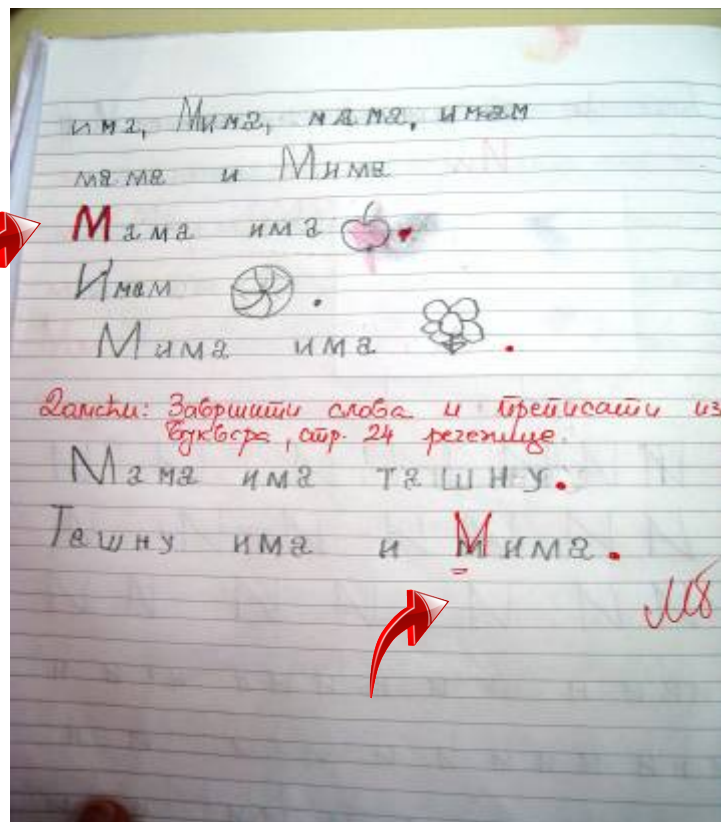 има, Мима, мама, имам
мама и Мима
Мама има .
Имам .
Мима има .
Задаћи: Завршити слова и преписати из
буквара, стр. 24 реченице.
Мама има ташну.
Ташну има и Мима.